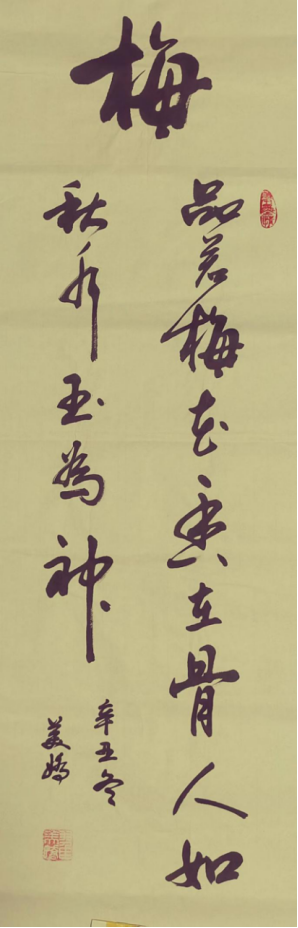 梅
品若梅花香在骨人如
秋水玉為神
辛丑冬
美嬌